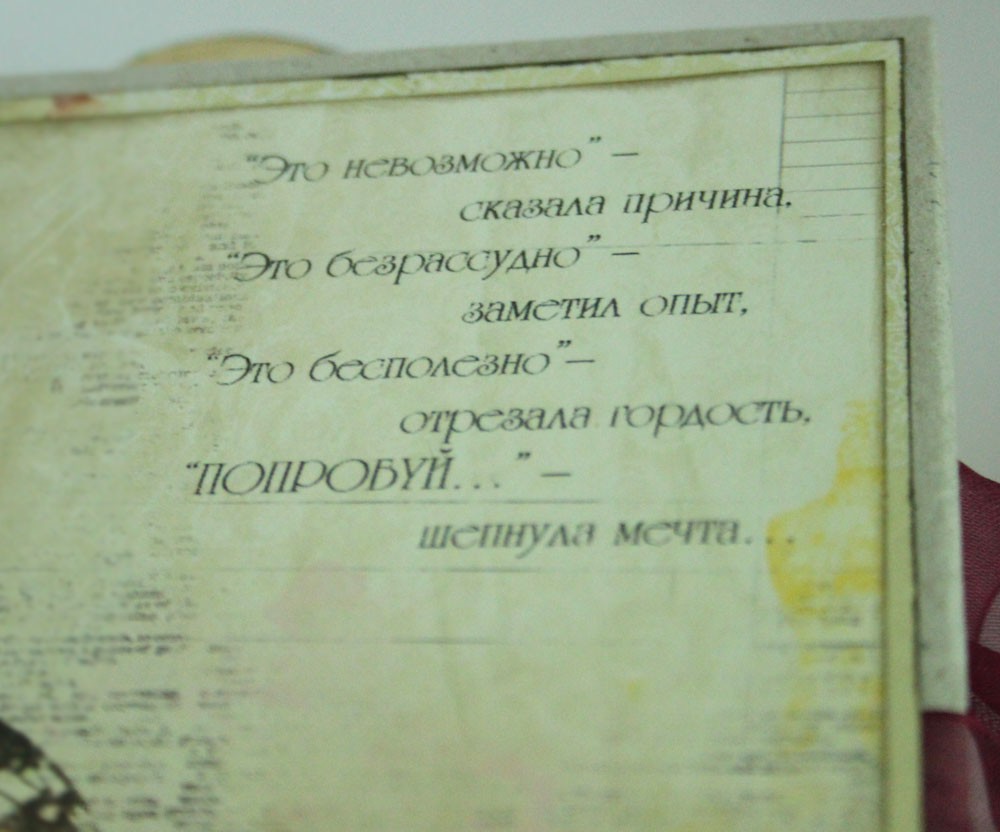 “Это невозможно” –
сказала причина.
“Это безрассудно” –
заметил опыт,
“Это бесполезно”–
отрезала гордость.
“ПОПРОБУЙ...” –
шепнула мечта...